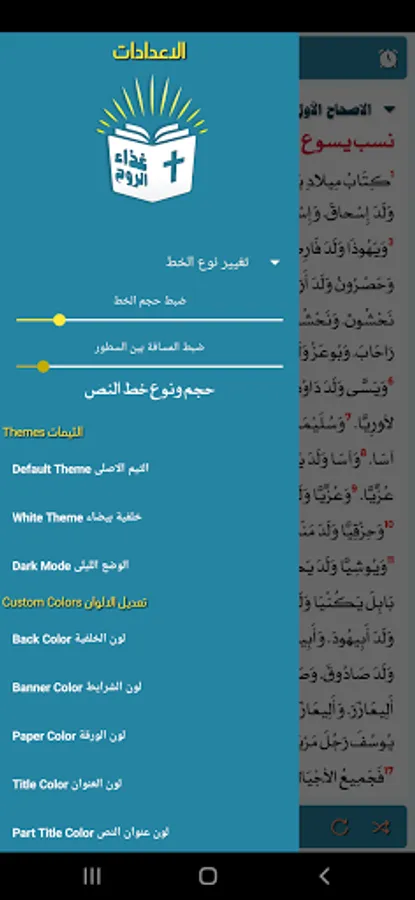 الاعدادات
غذاء
الروح
تغيير نوع الخط
ضبط حجم الخط
ضبط المسافة بين السطور
حجم ونوع خط النص
Themes الثيمات
Default Theme الثيم الاصلى
White Theme خلفية بيضاء
Dark Mode الوضع الليلى
Custom Colors تعديل الالوان
Back Color لون الخلفية
Banner Color لون الشرايط
Paper Color لون الورقة
Title Color لون العنوان
Part Title Color لون عنوان النص
الاصحاح الأول
نسب يسوع
1كِتَابُ مِيلادِ
وَلَدَ إِسْحاقَ. وَإِسْ
3وَيَهُوذَا وَلَدَ فَارِ
وَحَصْرُونُ وَلَدَ أَرَ
نَحْشُونَ. وَنَحْشُ
رَاحَابَ. وَبُوعَزُ وَ
6وَيَسَّى وَلَدَ دَاوُ
لأُورِيَّا. 7وَسُلَيْمَ
آسَا. 8وَآسَا وَلَدَ
عُزِّيَّا. 9وَعُزِّيَّا وَلَ
10وَحِزْقِيَّا وَلَدَ مَنَ
11وَيُوشِيَّا وَلَدَ يَكُ
بَابِلَ يَكُنْيَا وَلَ
وَلَدَ أَبِيهُودَ. وَأَبِي
وَلَدَ صَادُوقَ. وَصَ
أَلِيعَازَرَ. وَأَلِيعَازَ
يُوسُفَ رَجُلَ مَرْيَ
17فَجَمِيعُ الأَجْيَا